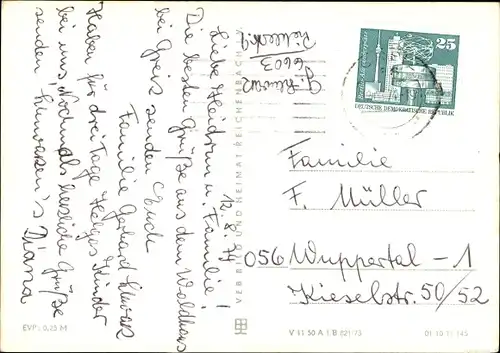 G. Lunau
6603
12.8.74
Liebe Heidrun u. Familie!
Die besten Grüße aus dem Waldhaus
bei Greiz senden Euch
Familie Gerhard
Haben für drei Tage Helgas Kinder
bei uns, Nochmals herzliche Grüße
senden Diana
25
DEUTSCHE DEMOKRATISCHE REPUBLIK
Familie
F. Müller
056 Wuppertal-1
Kieselstr. 50/52
VEB BILD UND HEIMAT REICHENBACH
EVP: 0,25 M
V 11 50 A 1 B 821/73
01 10 15 145